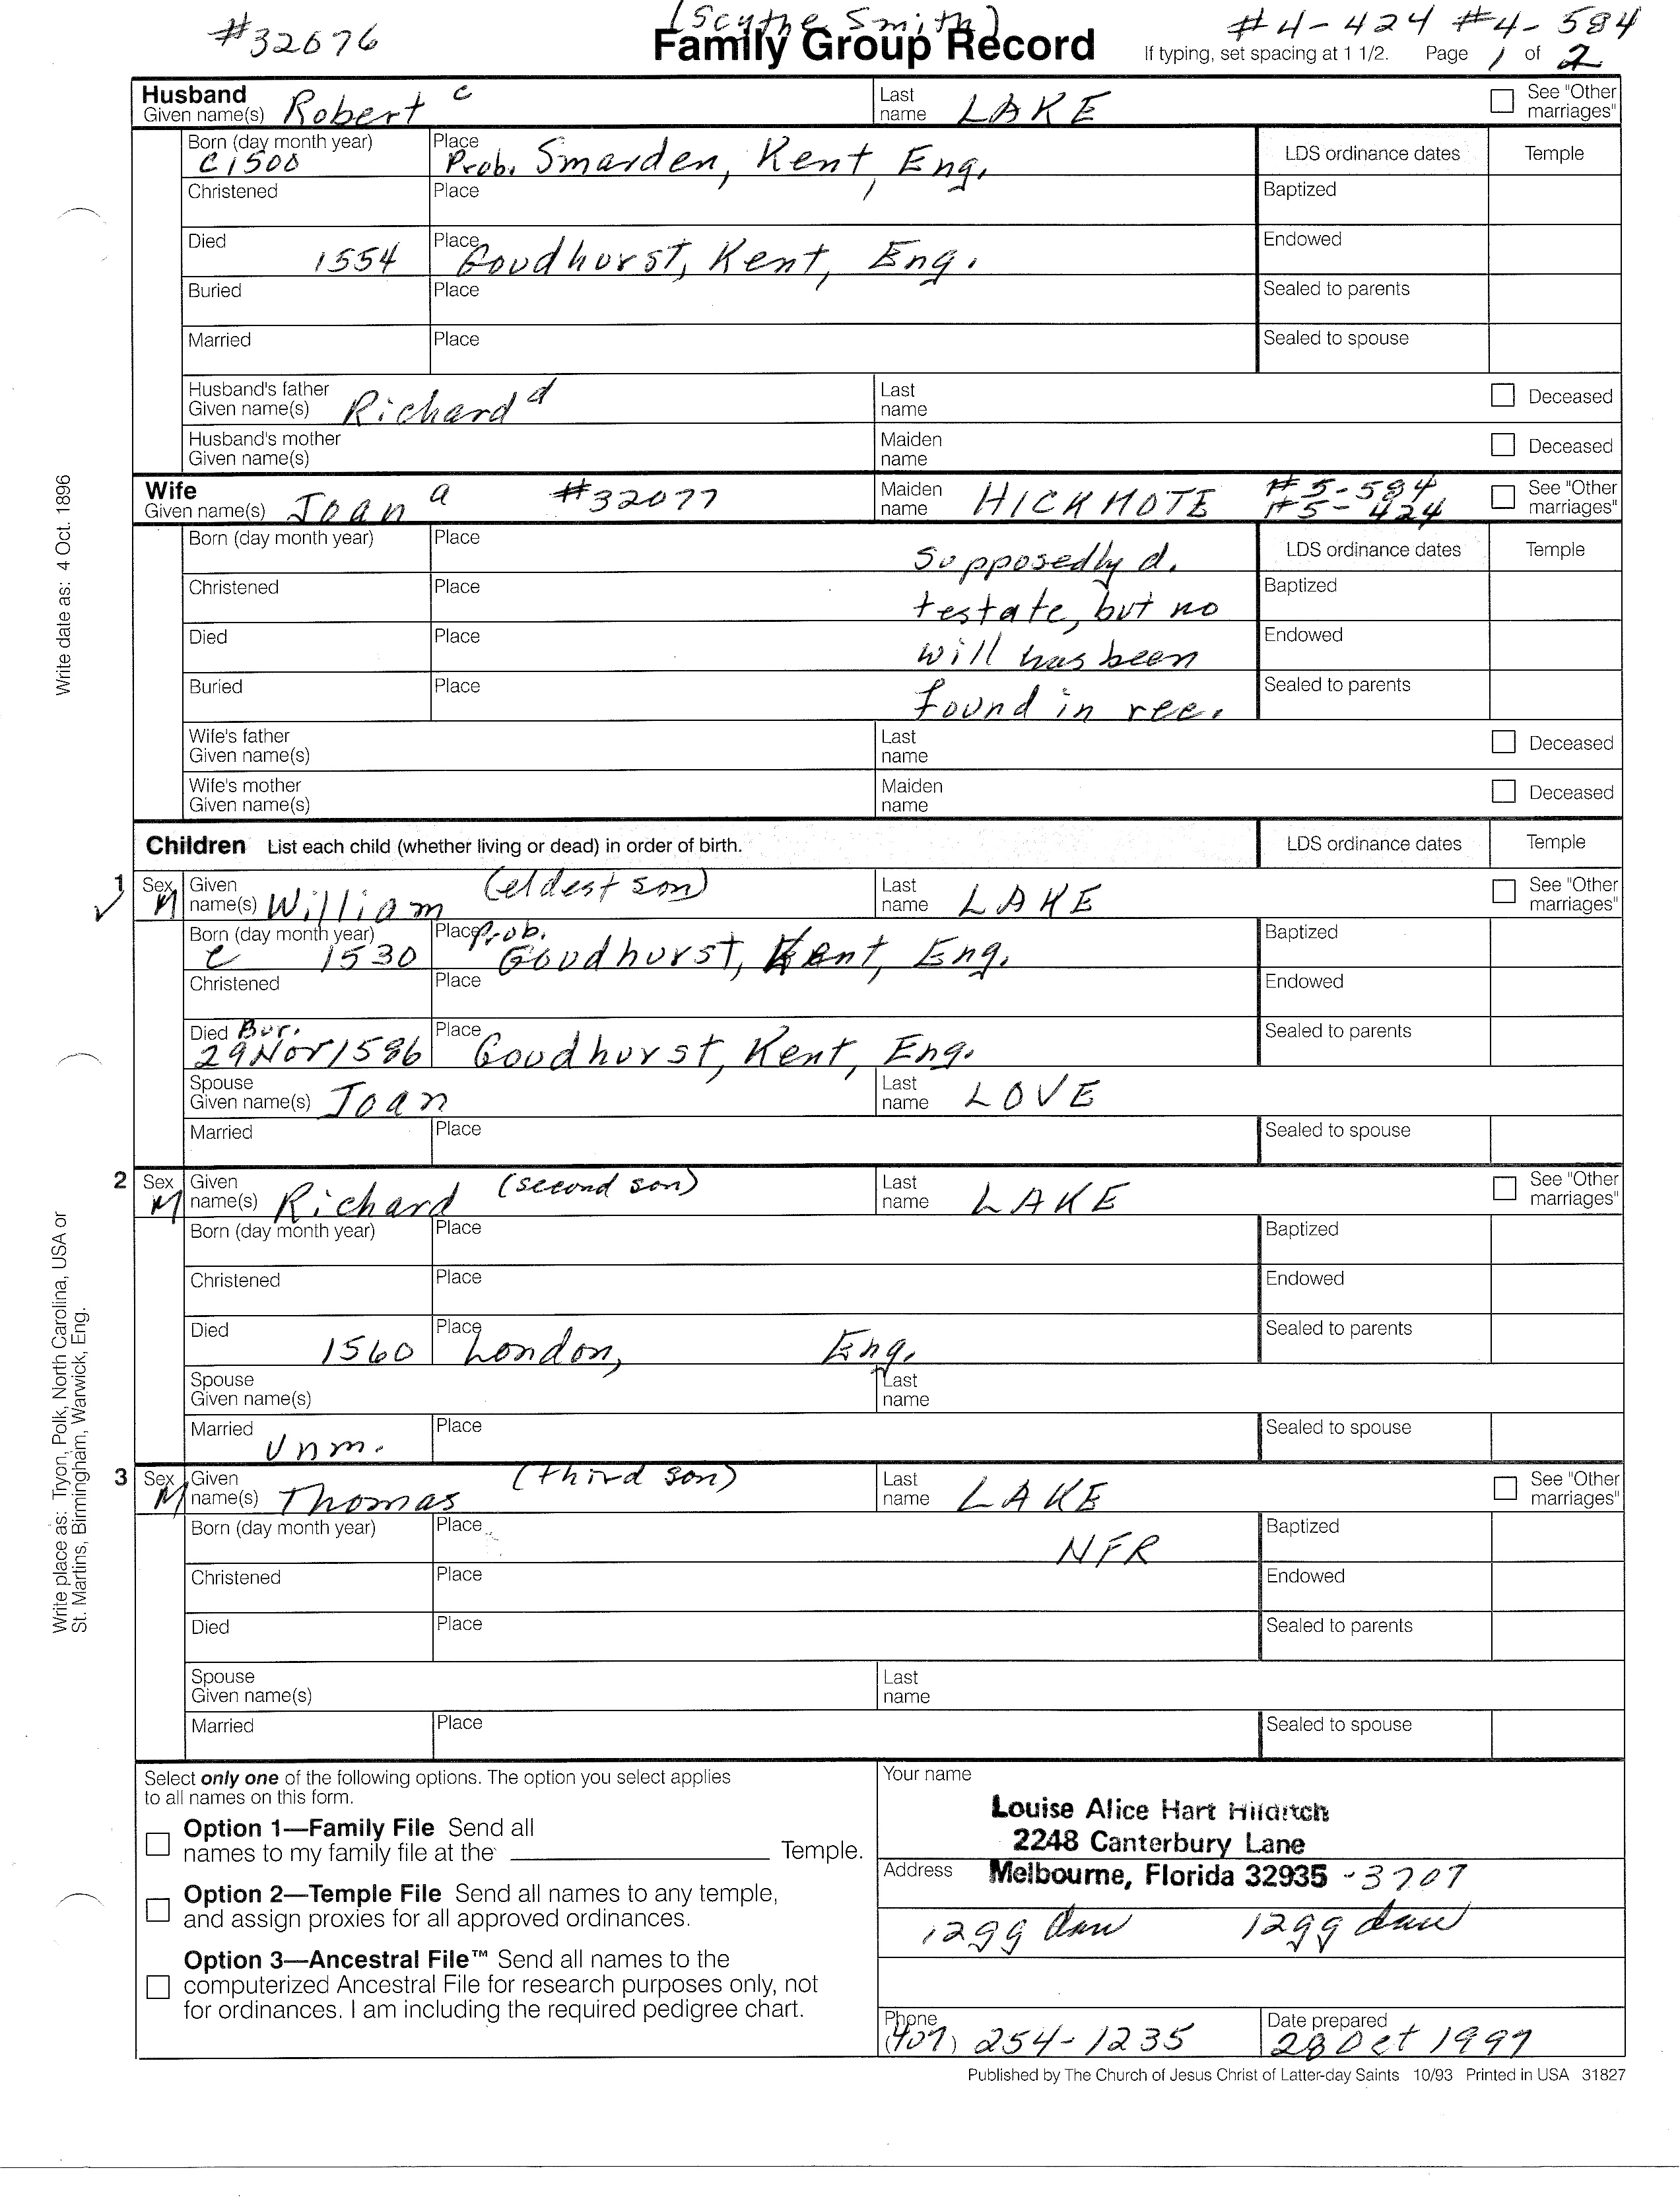 (Scythe Smith)
#32676 Family Group Record #4-424 #4-584
If typing, set spacing at 1 1/2. Page 1 of 2
Husband
Given name(s) Robert c Last name LAKE See "Other marriages"
Born (day month year) C1500 Place Prob. Smarden, Kent, Eng. LDS ordinance dates Temple
Christened Place Baptized
Died 1554 Place Goudhurst, Kent, Eng. Endowed
Buried Place Sealed to parents
Married Place Sealed to spouse
Husband's father Given name(s) Richard d Last name Deceased
Husband's mother Given name(s) Maiden name Deceased
Wife
Given name(s) Joan a #32077 Maiden name HICKMOTE #5-584 #5-424 See "Other marriages"
Born (day month year) Place Supposedly d. LDS ordinance dates Temple
Christened Place testate, but no Baptized
Died Place will has been Endowed
Buried Place found in rec. Sealed to parents
Wife's father Given name(s) Last name Deceased
Wife's mother Given name(s) Maiden name Deceased
Children List each child (whether living or dead) in order of birth. LDS ordinance dates Temple
1 Sex M Given name(s) William (eldest son) Last name LAKE See "Other marriages"
Born (day month year) c 1530 Place Prob. Goudhurst, Kent, Eng. Baptized
Christened Place Endowed
Died Bur. 29 Nov 1586 Place Goudhurst, Kent, Eng. Sealed to parents
Spouse Given name(s) Joan Last name LOVE
Married Place Sealed to spouse
2 Sex M Given name(s) Richard (second son) Last name LAKE See "Other marriages"
Born (day month year) Place Baptized
Christened Place Endowed
Died 1560 Place London, Eng. Sealed to parents
Spouse Given name(s) Last name
Married Unm. Place Sealed to spouse
3 Sex M Given name(s) Thomas (third son) Last name LAKE See "Other marriages"
Born (day month year) Place NFR Baptized
Christened Place Endowed
Died Place Sealed to parents
Spouse Given name(s) Last name
Married Place Sealed to spouse
Write date as: 4 Oct. 1896
Write place as: Tryon, Polk, North Carolina, USA or
St. Martins, Birmingham, Warwick, Eng.
Select only one of the following options. The option you select applies
to all names on this form.
Option 1—Family File Send all
names to my family file at the Temple.
Option 2—Temple File Send all names to any temple,
and assign proxies for all approved ordinances.
Option 3—Ancestral File™ Send all names to the
computerized Ancestral File for research purposes only, not
for ordinances. I am including the required pedigree chart.
Your name
Louise Alice Hart Hilditch
2248 Canterbury Lane
Address Melbourne, Florida 32935 -3707
12gg dau 12gg dau
Phone (407) 254-1235 Date prepared 28 Oct 1997
Published by The Church of Jesus Christ of Latter-day Saints 10/93 Printed in USA 31827